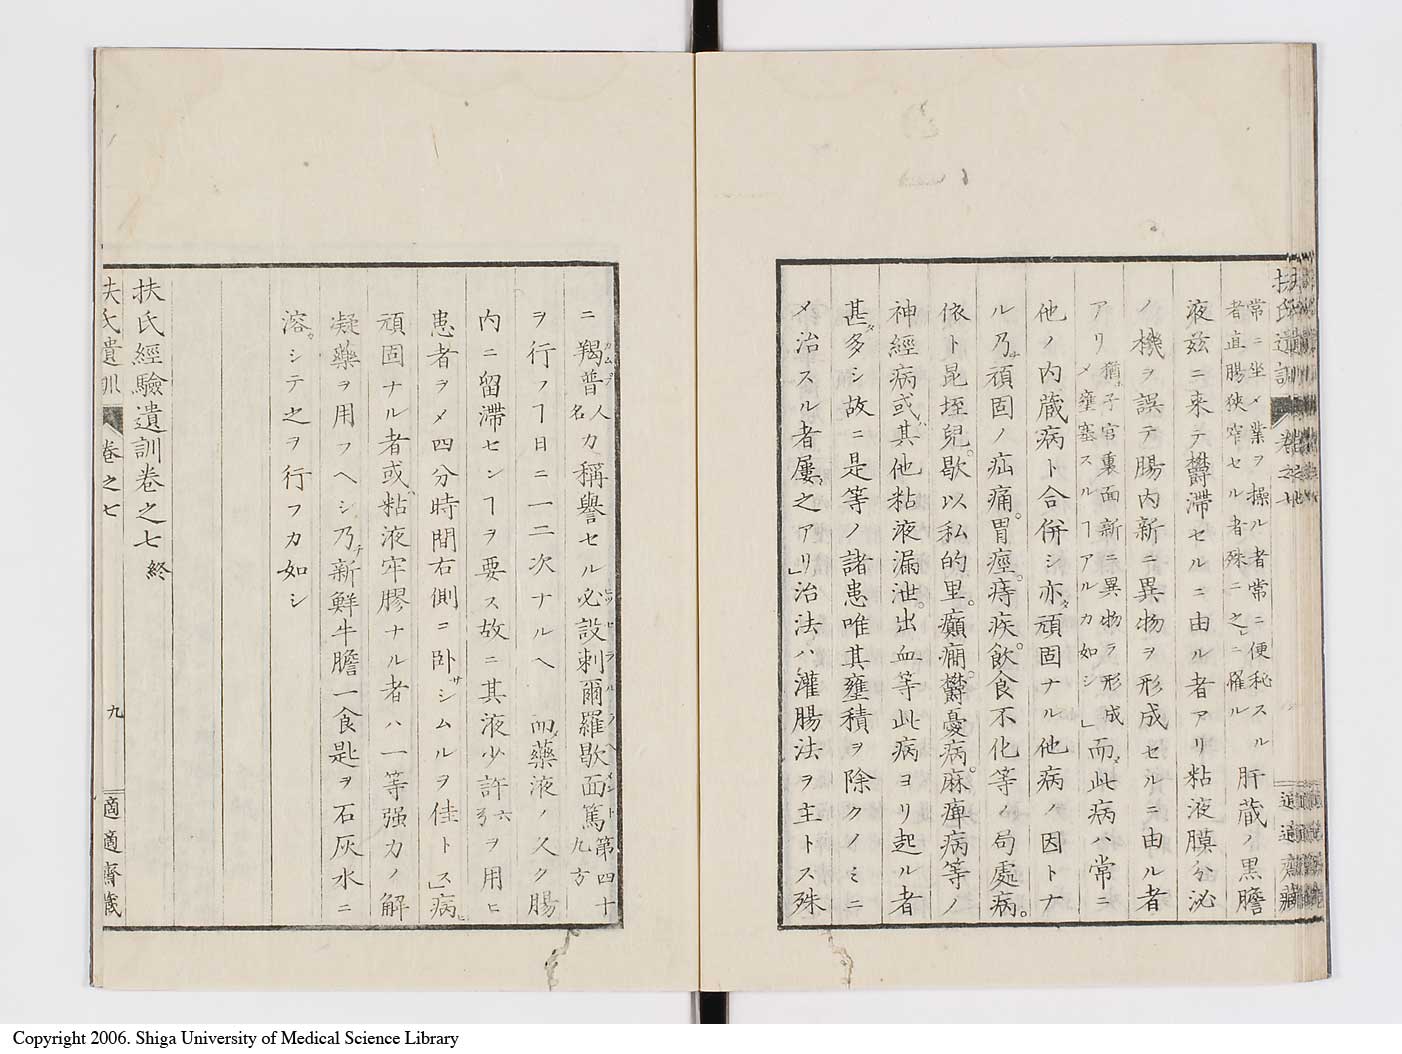 常ニ坐シメ業ヲ操ル者常ニ便秘スル
者直腸狭窄セル者殊ニ之ニ罹ル
肝蔵ノ黒膽
液玆ニ来テ欝滞セルニ由ル者アリ粘液膜分泌
ノ機ヲ誤テ腸内新ニ異物ヲ形成セルニ由ル者
アリ
猶子宮裏面新ニ異物ヲ形成シ
メ壅塞スルヿアルカ如シ」
而此病ハ常ニ
他ノ内蔵病ト合併シ亦頑固ナル他病ノ因トナ
ル乃頑固ノ疝痛。胃痙。痔疾。飲食不化等ノ局處病。
依ト昆垤兒。歇以私的里。癲癇。欝憂病。麻痺病等ノ
神經病或其他粘液漏泄。出血等此病ヨリ起ル者
甚多シ故ニ是等ノ諸患唯其壅積ヲ除クノミニ
メ治スル者屢之アリ」治法ハ灌腸法ヲ主トス殊
ニ羯普人名カ稱譽セル必設刺爾羅歇面篤第四十九方
ヲ行フヿ日ニ一二次ナルヘ而藥液ノ久ク腸
内ニ留滞センヿヲ要ス故ニ其液少許六ヲ用ヒ
患者ヲメ四分時間右側ニ卧サシムルヲ佳トス」病
頑固ナル者或粘液牢膠ナル者ハ一等强力ノ解
凝藥ヲ用フヘシ乃新鮮牛膽一食匙ヲ石灰水ニ
溶。シテ之ヲ行フカ如シ
扶氏經驗遺訓卷之七 終
扶氏遺訓 卷之七 九 適適齋藏
Copyright 2006. Shiga University of Medical Science Library